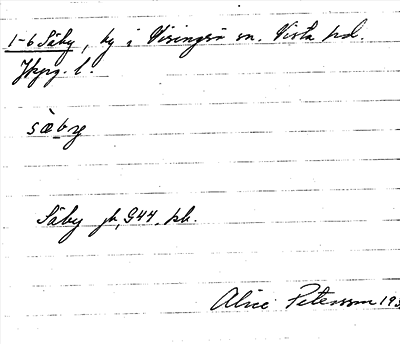 1-6 Säby, by i Visingsö sn. Vista hd.
Jkpg. l.
sæ̀by
Säby jb, G44. hk.
Alice Petersson 193